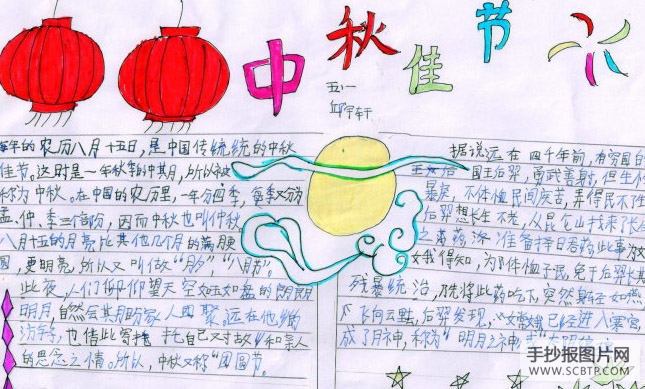 中秋佳节
五·一
邱宇轩
年的农历八月十五日，是中国传统统的中秋
佳节。这时是一年秋季的中其月，所以被
称为中秋。在中国的农历里，一年分四季，每季又分为
孟、仲、季三个部份，因而中秋也叫仲秋
八月十五的月亮比其他几个月的满月更
圆，更明亮，所以又叫做“月夕”，“八月节”。
此夜，人们仰望天空如玉如盘的朗朗
明月，自然会其盼家人团聚。远在他乡的
游子，也借此寄托自己对故乡和亲人
的思念之情。所以，中秋又称“团圆节。
据说远在四千年前，有穷国的
国王后羿，勇武善射，但生性
暴戾，不体恤民间疾苦，弄得民不
后羿想长生不老，从昆仑山找来了长
之毒药，准备择日吞药此事为
娥得知，为了体恤子民，免于后羿长期
残暴统治，乃先将此药吃下，突然身轻如燕
飞向云端，后羿发现，嫦娥已经进入寒宫，
成了月神，称为“明月之神
手抄报图片网
WWW.SCBTP.COM